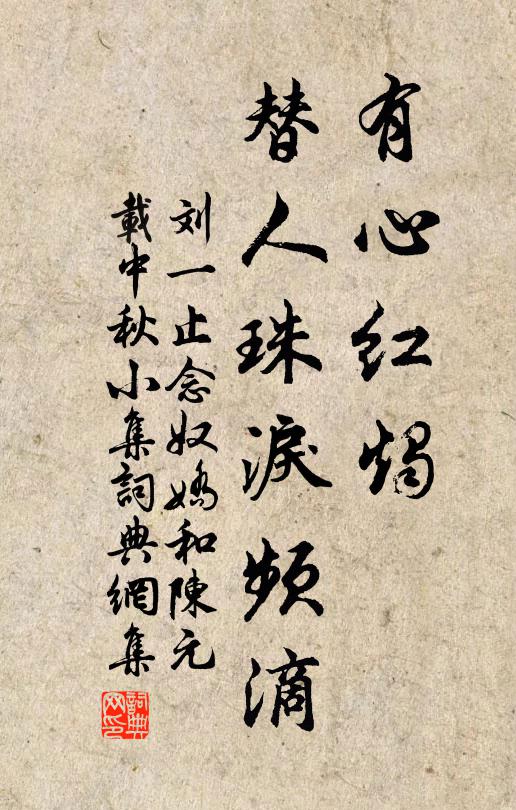 有心红烛
替人珠淚频滴
刘一止念奴嬌和陳元
載中秋小集詞典網集
詞典网印